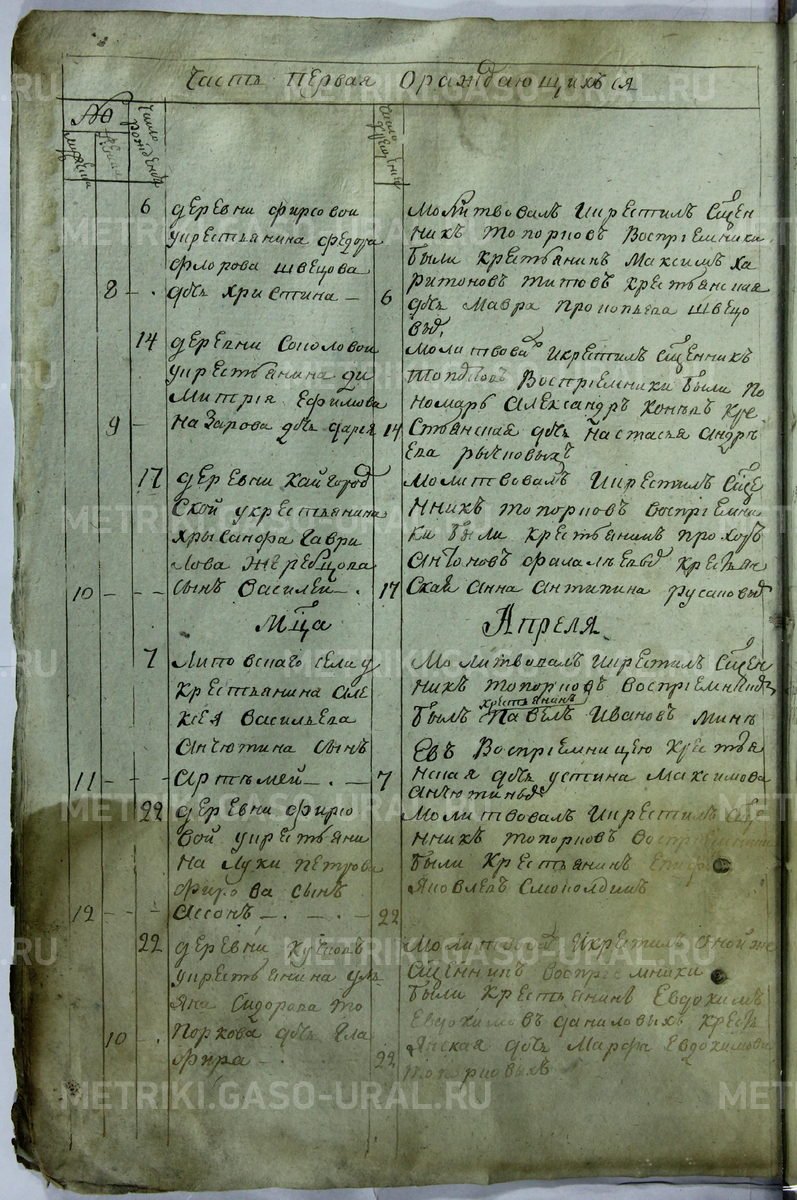 Часть первая Ораждающихъся
№
мужеска
женска
число рожденія
число крещенія
6 деревни фирсовои
укрестьянина федора
флорова швецова
8 - . дчь христина —
6
молитвовалъ икрестилъ сщен
никъ топорковъ Воспріемники
были крестьянинъ Максимъ ха
ритоновъ титовъ крестьянская
дчь мавра прокопьева швецо
выхъ
14 деревни Соколовои
укрестьянина ди
митрія Ефимова
9 - назарова дчь дарья
14
молитвовалъ икрестилъ сщенникъ
топорковъ Воспріемники были по
номарь александръ коневъ кре
стьянская дчь настасья андре
ева рычковыхъ
17 деревни кайгород
ской укрестьянина
хрысанфа гаври
лова жеребцова
10 - - - сынъ василей — .
17
молитвовалъ икрестилъ сщен
никъ топорковъ воспріемни
ки были крестьянинъ прохоръ
антоновъ фалалѣевъ крестьян
ская анна антипина русаковыхъ
Мца Апреля
7 липовскаго села у
крестьянина але
ксея васильева
анчютина сынъ
11 - - - артемей — . —
7
молитвовалъ икрестилъ сщен
никъ топорковъ воспріемникомъ
крестьянинъ
былъ павелъ ивановъ мине
евъ воспріемницею крестья
нская дчь устина максимова
анчютиныхъ
22 деревни фирсо
вой укрестьяни
на луки петрова
фирсова сынъ
12 - - - ассонъ — . — . —
22
молитвовалъ икрестилъ сщен
нникъ топорковъ воспріемники
были крестьянинъ
яковлевъ смоколдинъ
22 деревни
укрестьянина уль
яна сидорова то
10 - поркова дчь гла
фира — .
22
молитвовалъ икрестилъ оной же
сщенникъ воспріемники
были крестьянинъ евдокимъ
евдокимовъ даниловыхъ кресть
янская дчь марфа евдокимова
топорковыхъ
METRIKI.GASO-URAL.RU